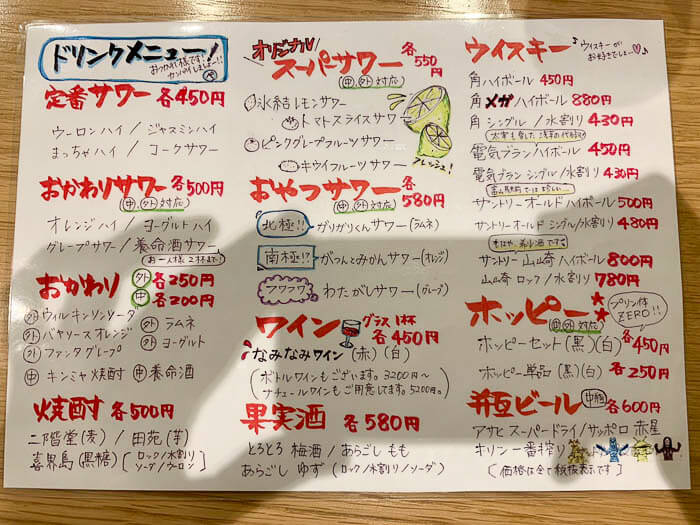 ドリンクメニュー!
おつかれ様です!
カンパイしましょー!!
定番サワー 各450円
ウーロンハイ / ジャスミンハイ
まっちゃハイ / コークサワー
おかわりサワー 各500円
中 外 対応
オレンジハイ / ヨーグルトハイ
グレープサワー / 養命酒サワー
お一人様2杯まで
おかわり 外 各250円
中 各200円
外 ウィルキンソンソーダ
外 バヤリースオレンジ 外 ラムネ
外 ファンタグレープ 外 ヨーグルト
中 キンミヤ焼酎 中 養命酒
焼酎 各500円
二階堂(麦) / 田苑(芋)
喜界島(黒糖) [ロック/水割り
ソーダ/ウーロン]
オリジナル
スーパーサワー 各550円
中 外 対応
氷結レモンサワー
トマトスライスサワー
ピンクグレープフルーツサワー
キウイフルーツサワー
フレッシュ!
おやつサワー 各580円
中 外 対応
北極!! ガリガリくんサワー(ラムネ)
南極!! がつんとみかんサワー(オレンジ)
フワフワ わたがしサワー(グレープ)
ワイン グラス1杯 各450円
なみなみワイン (赤)(白)
(ボトルワインもございます。3200円〜
ナチュールワインもご用意してます。5200円。)
果実酒 各580円
とろとろ梅酒 / あらごしもも
あらごしゆず (ロック/水割り/ソーダ)
ウイスキー ♪ウイスキーが
お好きでしょ…♡♪
角ハイボール 450円
角メガハイボール 880円
角シングル / 水割り 430円
電気ブランハイボール 450円
電気ブランシングル / 水割り 430円
サントリーオールドハイボール 500円
サントリーオールド シングル/水割り 480円
サントリー山崎ハイボール 800円
山崎ロック / 水割り 780円
ホッピー プリン体
ZERO!!
中 外 対応
ホッピーセット(黒)(白) 各450円
ホッピー単品(黒)(白) 各250円
瓶ビール 中瓶 各600円
アサヒスーパードライ/サッポロ赤星
キリン一番搾り
(価格は全て税抜表示です)